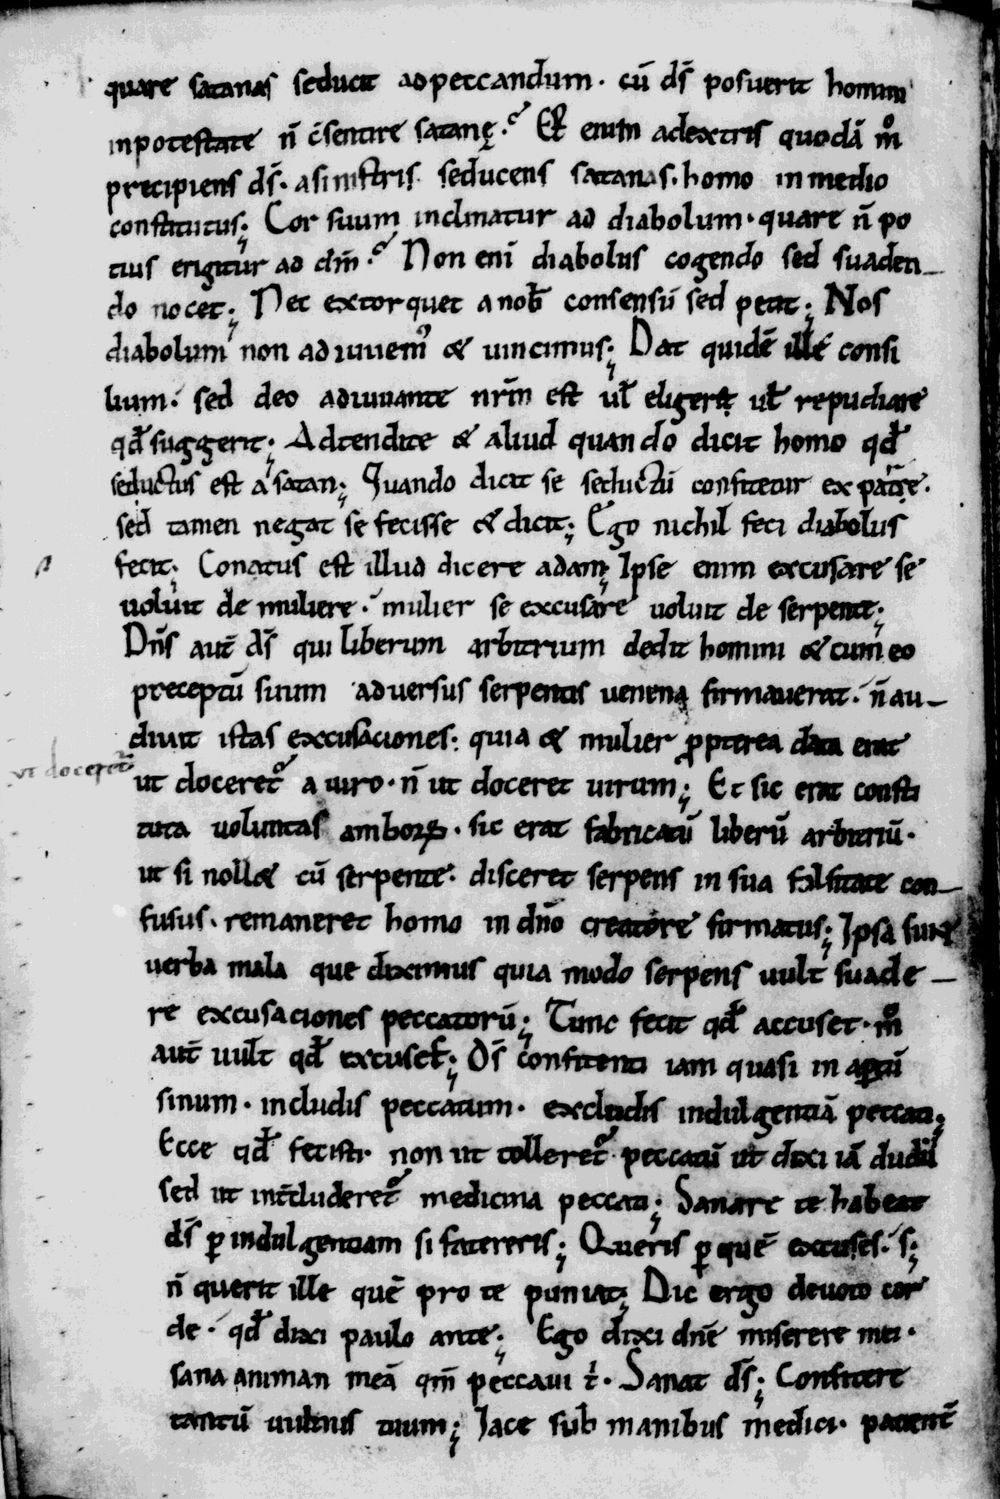 quare satanas seducit ad peccandum. cū ds̄ posuerit homini
in potestate n̄ c̄sentire satanę.? Et enim a dextris quodā m̊
precipiens ds̄. a sinistris seducens satanas. homo in medio
constitutus; Cor suum inclinatur ad diabolum. quare n̄ po
tius erigitur ad dm̄.? Non enī diabolus cogendo sed suaden
do nocet; Nec extorquet a nob̄ consensū sed petit; Nos
diabolum non adiuuem᾽ & uincimus; Dat quidē ille consi
lium. sed deo adiuuante nrm̄ est ul̄ eligere ul̄ repudiare
qd̄ suggerit; Adtendite & aliud quando dicit homo qd̄
seductus est a satan; Quando dicit se seductū confitetur ex parte.
sed tamen negat se fecisse & dicit; Ego nichil feci diabolus
fecit; Conatus est illud dicere adam; Ipse enim excusare se
uoluit de muliere. mulier se excusare uoluit de serpente;
Dn̄s aut̄ ds̄ qui liberum arbitrium dedit homini & cum eo
preceptū suum aduersus serpentis uenena firmauerat. n̄ au
diuit istas excusaciones. quia & mulier ꝓpterea data erat
ut doceret᾽
ut doceret᾽ a uiro. n̄ ut doceret uirum; Et sic erat consti
tuta uoluntas amboꝝ. sic erat fabricatū liberū arbitriū.
ut si noll& cū serpente. disceret serpens in sua falsitate con
fusus. remaneret homo in dn̄o creatore firmatus; Ipsa sunt
uerba mala que diximus quia modo serpens uult suade
re excusaciones peccatorū; Tunc fecit qd̄ accuset. m̊
aut̄ uult qd̄ excuset; Ds̄ confitenti iam quasi in aꝑtū
sinum. includis peccatum. excludis indulgentiā peccati;
Ecce qd̄ fecisti. non ut tolleret᾽ peccatū ut dixi iā dudū
sed ut int̄cluderet᾽ medicina peccati; Sanare te habeat
ds̄ ꝑ indulgentiam si fatereris; Queris ꝑ quē excuses. s;
n̄ querit ille quē pro te puniat; Dic ergo deuoto cor
de. qd̄ dixi paulo ante; Ego dixi dn̄e miserere mei.
sana animan meā qm̄ peccaui t̄. Sanat ds̄; Confitere
tantū uulnus tuum; Iace sub manibus medici. patient̄